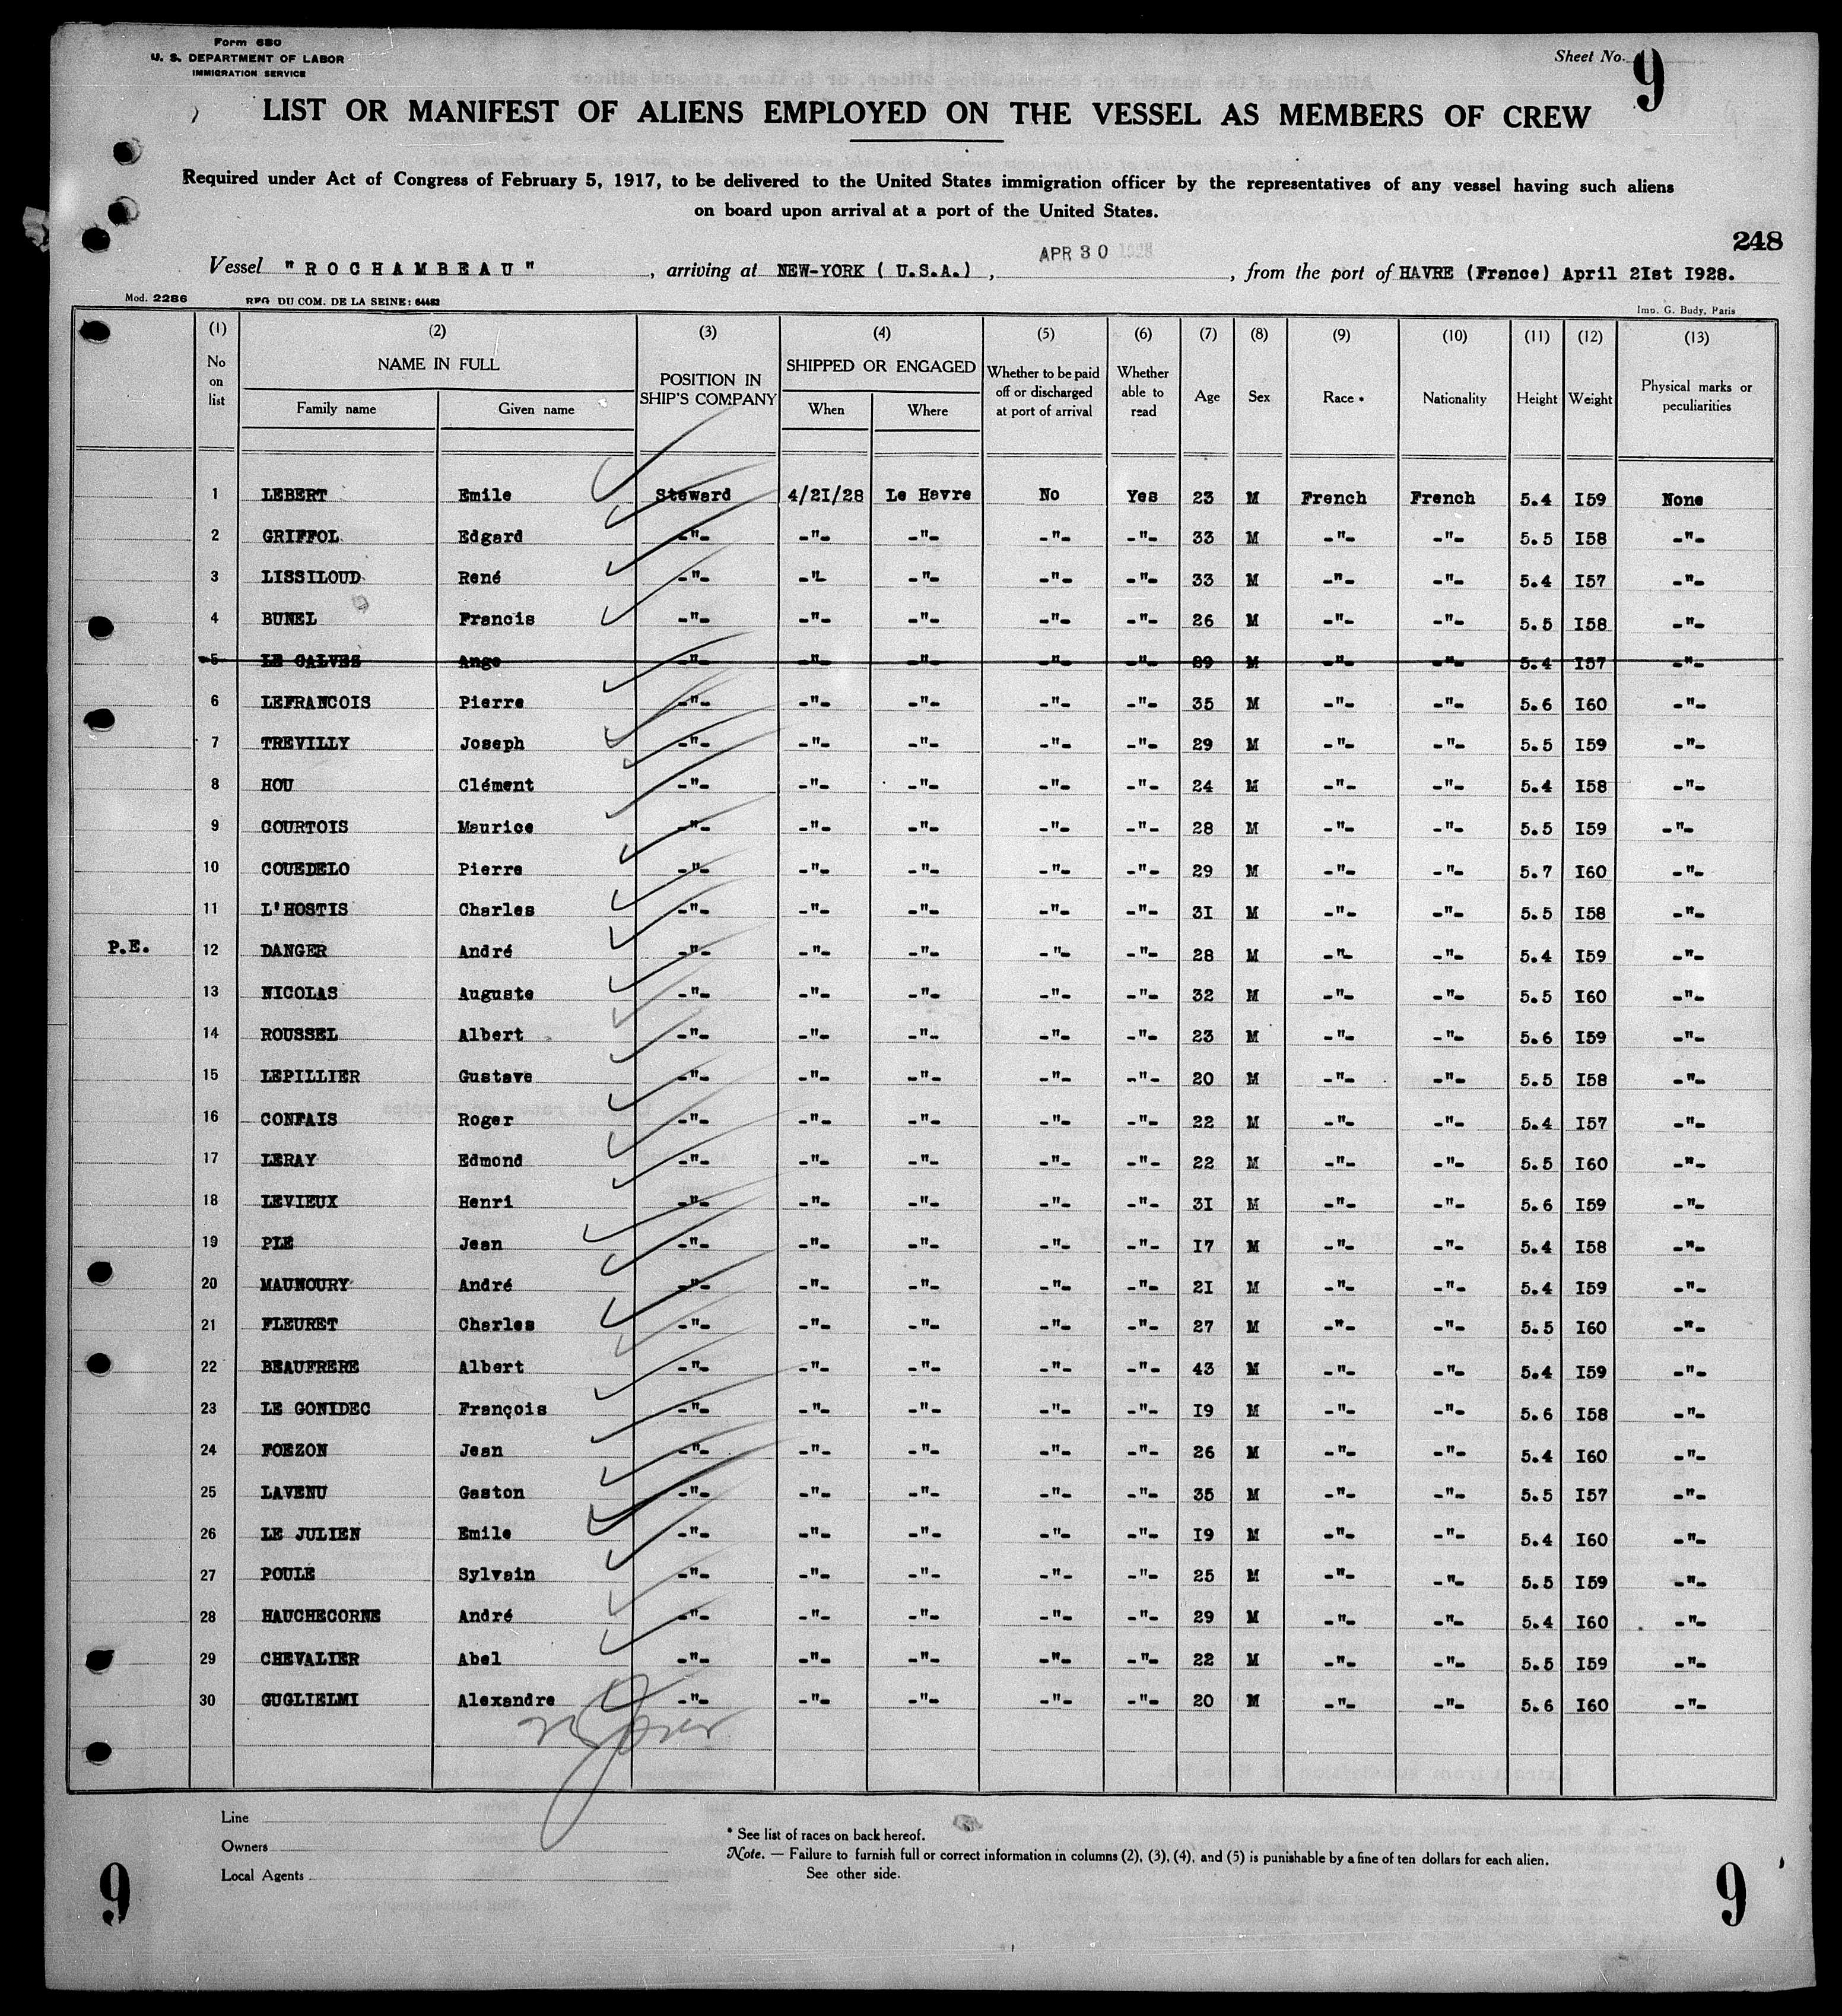 Form 680
U. S. DEPARTMENT OF LABOR
IMMIGRATION SERVICE
Sheet No. 9
LIST OR MANIFEST OF ALIENS EMPLOYED ON THE VESSEL AS MEMBERS OF CREW
Required under Act of Congress of February 5, 1917, to be delivered to the United States immigration officer by the representatives of any vessel having such aliens
on board upon arrival at a port of the United States.
248
APR 30 1928
Vessel "ROCHAMBEAU", arriving at NEW-YORK (U.S.A.), , from the port of HAVRE (France) April 2Ist I928.
Mod. 2286 REG DU COM. DE LA SEINE: 64483 Imp. G. Budy, Paris
(1) (2) (3) (4) (5) (6) (7) (8) (9) (10) (11) (12) (13)
No on list NAME IN FULL Family name Given name POSITION IN SHIP'S COMPANY SHIPPED OR ENGAGED When Where Whether to be paid off or discharged at port of arrival Whether able to read Age Sex Race * Nationality Height Weight Physical marks or peculiarities
1 LEBERT Emile Steward 4/2I/28 Le Havre No Yes 23 M French French 5.4 I59 None
2 GRIFFOL Edgard -"- -"- -"- -"- -"- 33 M -"- -"- 5.5 I58 -"-
3 LISSILOUD René -"- -"- -"- -"- -"- 33 M -"- -"- 5.4 I57 -"-
4 BUNEL Francis -"- -"- -"- -"- -"- 26 M -"- -"- 5.5 I58 -"-
5 LE CALVES Ange -"- -"- -"- -"- -"- 29 M -"- -"- 5.4 I57 -"-
6 LEFRANCOIS Pierre -"- -"- -"- -"- -"- 35 M -"- -"- 5.6 I60 -"-
7 TREVILLY Joseph -"- -"- -"- -"- -"- 29 M -"- -"- 5.5 I59 -"-
8 HOU Clément -"- -"- -"- -"- -"- 24 M -"- -"- 5.4 I58 -"-
9 COURTOIS Maurice -"- -"- -"- -"- -"- 28 M -"- -"- 5.5 I59 -"-
10 COUEDELO Pierre -"- -"- -"- -"- -"- 29 M -"- -"- 5.7 I60 -"-
11 L'HOSTIS Charles -"- -"- -"- -"- -"- 3I M -"- -"- 5.5 I58 -"-
P.E. 12 DANGER André -"- -"- -"- -"- -"- 28 M -"- -"- 5.4 I59 -"-
13 NICOLAS Auguste -"- -"- -"- -"- -"- 32 M -"- -"- 5.5 I60 -"-
14 ROUSSEL Albert -"- -"- -"- -"- -"- 23 M -"- -"- 5.6 I59 -"-
15 LEPILLIER Gustave -"- -"- -"- -"- -"- 20 M -"- -"- 5.5 I58 -"-
16 CONFAIS Roger -"- -"- -"- -"- -"- 22 M -"- -"- 5.4 I57 -"-
17 LERAY Edmond -"- -"- -"- -"- -"- 22 M -"- -"- 5.5 I60 -"-
18 LEVIEUX Henri -"- -"- -"- -"- -"- 3I M -"- -"- 5.6 I59 -"-
19 PLE Jean -"- -"- -"- -"- -"- I7 M -"- -"- 5.4 I58 -"-
20 MAUNOURY André -"- -"- -"- -"- -"- 2I M -"- -"- 5.4 I59 -"-
21 FLEURET Charles -"- -"- -"- -"- -"- 27 M -"- -"- 5.5 I60 -"-
22 BEAUFRERE Albert -"- -"- -"- -"- -"- 43 M -"- -"- 5.4 I59 -"-
23 LE GONIDEC François -"- -"- -"- -"- -"- I9 M -"- -"- 5.6 I58 -"-
24 FOEZON Jean -"- -"- -"- -"- -"- 26 M -"- -"- 5.4 I60 -"-
25 LAVENU Gaston -"- -"- -"- -"- -"- 35 M -"- -"- 5.5 I57 -"-
26 LE JULIEN Emile -"- -"- -"- -"- -"- I9 M -"- -"- 5.4 I60 -"-
27 POULE Sylvain -"- -"- -"- -"- -"- 25 M -"- -"- 5.5 I59 -"-
28 HAUCHECORNE André -"- -"- -"- -"- -"- 29 M -"- -"- 5.4 I60 -"-
29 CHEVALIER Abel -"- -"- -"- -"- -"- 22 M -"- -"- 5.5 I59 -"-
30 GUGLIELMI Alexandre -"- -"- -"- -"- -"- 20 M -"- -"- 5.6 I60 -"-
Line
Owners
Local Agents
* See list of races on back hereof.
Note. — Failure to furnish full or correct information in columns (2), (3), (4), and (5) is punishable by a fine of ten dollars for each alien.
See other side.
9 9